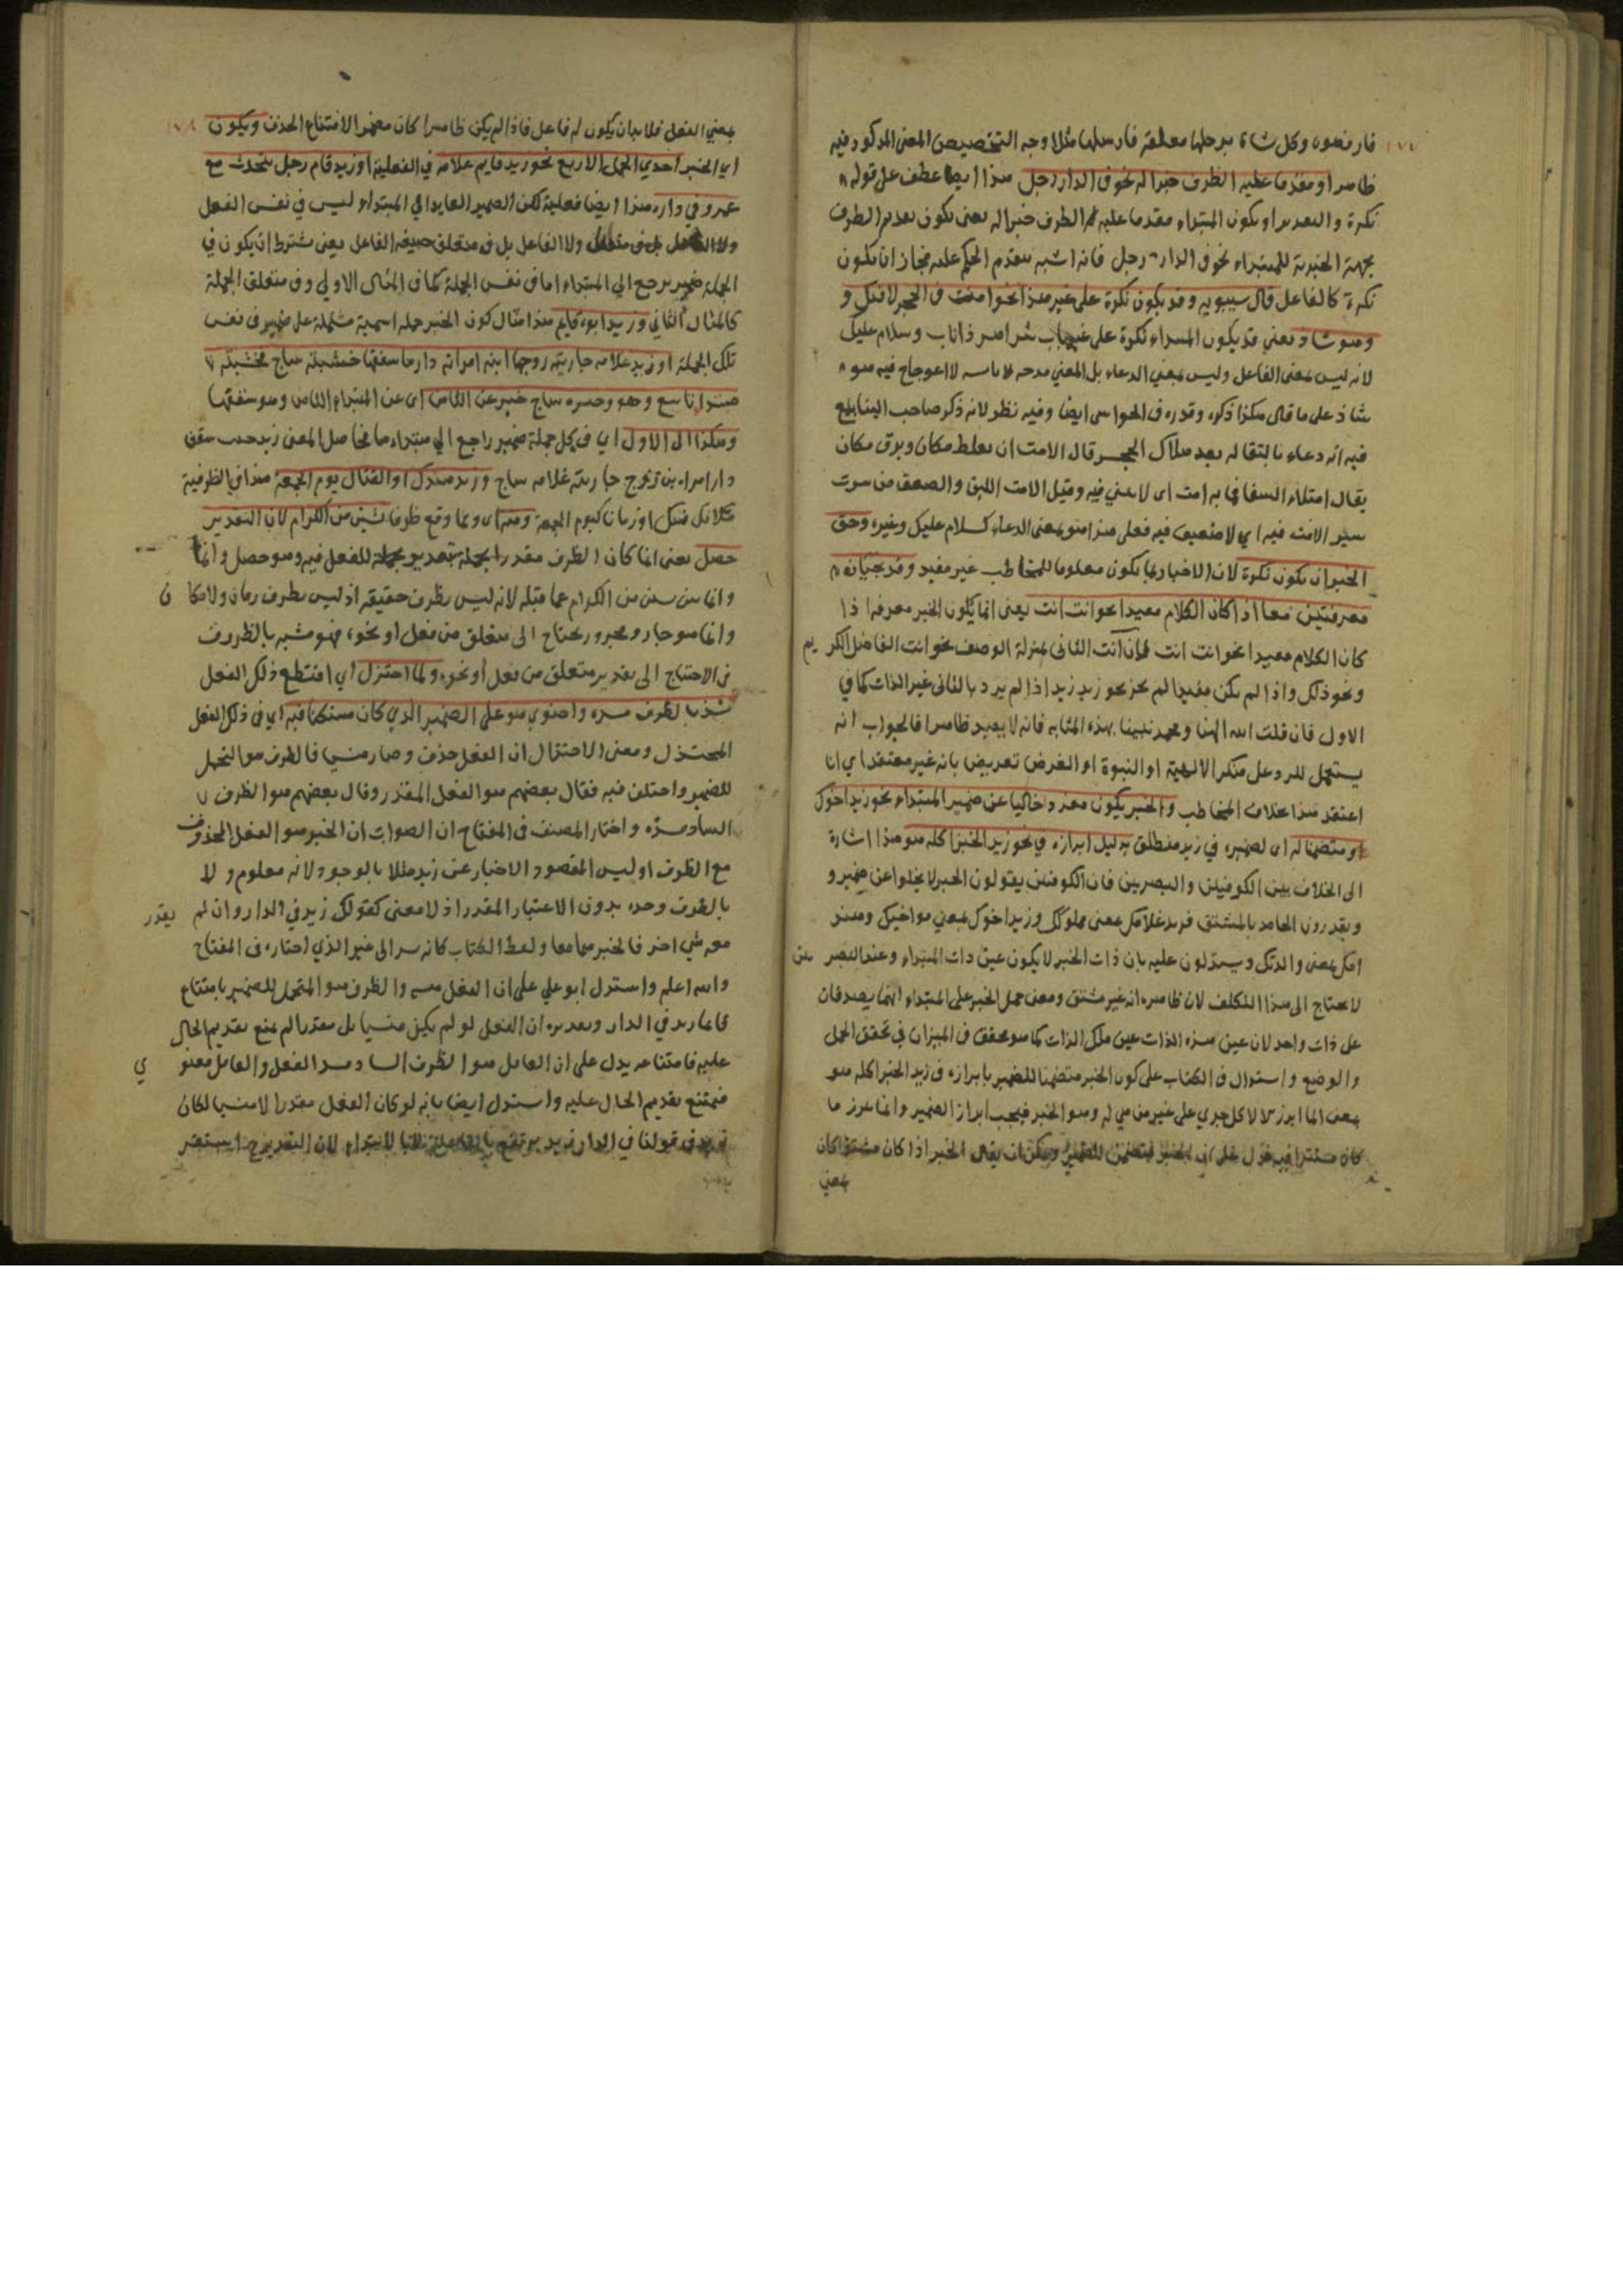 ظاهرا او مقدما عليه الظرف خبرا له نحو في الدار رجل هذا ايضا عطف على قوله
نكرة والتقدير او يكون المبتداء مقدما عليه الظرف خبرا له يعني يكون تقديم الظرف
بجهة الخبرية للمبتداء نحو في الدار رجل فانه اشبه بتقدم الحكم عليه فجاز ان يكون
نكرة كالفاعل قال سيبويه وقد يكون نكرة على غير هذا نحوا مت في الحجر لا فيك و
وهو شاذ يعني قد يكون المبتداء نكرة على غير باب شر اهر ذا ناب وسلام عليك
لانه ليس بمعنى الفاعل وليس بمعنى الدعاء بل المعنى مدحه لا اعوجاج فيه هو
شاذ على ما قال هكذا ذكره وقدره في الحواشي ايضا وفيه نظر لانه ذكر صاحب الينابيع
فيه انه دعاء بالبقا له بعد هلاك الحجر قال الامت ان يغلط مكان ويرق مكان
يقال امتلاء السقا فما به امت اى لا وقيل الامت اللين والضعف من سرت
سير الامت فيه اي لا ضعيف فيه فعلى هذا هو بمعنى الدعاء كسلام عليك وغيره وحق
الخبر ان يكون نكرة لان الاخبار بما يكون معلوما للمخاطب غير مفيد وقد يجيئان
معرفتين معا اذا كان الكلام مفيدا نحو انت انت يعني انما يكون الخبر معرفة اذا
كان الكلام مفيدا نحو انت انت فان انت الثاني بمنزلة الوصف نحو انت الفاضل الكريم
ونحو ذلك واذا لم يكن مفيدا لم يجز نحو زيد زيد اذا لم يرد بالثاني غير الذات كما في
الاول فان قلت الله الهنا ومحمد نبينا بهذه المثابة فانه لا يفيد ظاهرا فالجواب انه
يستعمل للرد على منكر الالهية او النبوة او الغرض تعريض بانه غير معتقد اي انا
اعتقد هذا بخلاف المخاطب والخبر يكون مفردا خاليا عن ضمير المبتداء نحو زيد اخوك
او متضمنا له اى لضميره في زيد منطلق بدليل ابرازه في نحو زيد الخبز اكله هو هذا اشارة
الى الخلاف بين الكوفيين والبصريين فان الكوفيين يقولون الخبر لا يخلوا عن ضمير و
ويقدرون الجامد بالمشتق فزيد غلامك بمعنى مملوكك وزيد اخوك بمعنى مواخيك
ويستدلون عليه بان ذات الخبر لا يكون عين ذات المبتداء وعند البصريين
لا يحتاج الى هذا التكلف لان ظاهره انه غير مشتق ومعنى حمل الخبر على المبتداء انهما يصدقان
على ذات واحد لان عين هذه الذات عين تلك الذات كما هو محقق في الميزان في تحقق الحمل
والوضع واستدل في الكتاب على كون الخبر متضمنا للضمير بابرازه في زيد الخبز اكله هو
بمعنى انما ابرز جري على غير من هي له وهو الخبر فيجب ابراز الضمير وانما يبرز ما
كان مستترا فيه فدل على ان الخبر متضمن للضمير ويمكن ان يقال الخبر اذا كان مشتقا كان
بمعنى
بمعنى الفعل فلا بد ان يكون له فاعل فاذا لم يكن ظاهرا كان مضمرا لامتناع الحذف ويكون ١٧٨
اي الخبر احدي الجمل الاربع نحو زيد قايم غلامه في الفعلية او زيد قام رجل يتحدث مع
عمرو في داره هذا ايضا فعلية لكن الضمير العايد الي المبتداء ليس في نفس الفعل
ولا الفاعل بل في متعلق صيغة الفاعل يعني يشترط ان يكون في
الجملة ضمير يرجع الي المبتداء اما في نفس الجملة كما في المثال الاولي وفي متعلق الجملة
كالمثال الثاني وزيد ابوه قايم هذا مثال كون الخبر جملة اسمية مشتملة على ضمير في نفس
تلك الجملة او زيد غلامه جاريته زوجها ابنه امراته دارها سقفها خشبته ساج فخشبته
مبتدا تاسع وحده ساج خبر عن الثامن اى عن المبتداء الثامن وهو سقفها
وهكذا الى الاول اي في كل جملة ضمير راجع الي مبتداء ها فحاصل المعنى زيد خشب سقف
دار امراة ابن زوج جارية غلامه ساج وزيد عندك او القتال يوم الجمعة هذا في الظرفية
مكانا كان او زمانا كيوم الجمعة ومنه اى ومما وقع ظرفا بشر من الكرام لان التقدير
حصل يعنى انما كان الظرف مقدرا بجملة بتقدير جملة للفعل فيه وهو حصل وانما
من الكرام عما قبله لانه ليس بظرف حقيقة اذ ليس بظرف زمان ولا مكان
وانما هو جار ومجرور يحتاج الى متعلق من فعل او نحوه فهو شبه بالظروف
في الاحتياج الى تقدير متعلق من فعل او نحوه ولما اختزل اي اقتطع ذلك الفعل
سد الظرف مسده واحتوي هو على الضمير الذي كان مستكنا فيه اي في ذلك الفعل
المختزل ومعنى الاختزال ان الفعل حذف وصار منسيا فالظرف هو المتحمل
للضمير واختلف فيه فقال بعضهم هو الفعل المقدر وقال بعضهم هو الظرف
الساد مسده واختار المصنف في المفتاح ان الصواب ان الخبر هو الفعل المحذوف
مع الظرف اذ ليس المقصود الاخبار عن زيد مثلا بالوجود لانه معلوم ولا
بالظرف وحده بدون الاعتبار المقدر اذ لا معنى كقولك زيد في الدار وان لم يقدر
معه شي اخر فالخبر هما معا ولفظ الكتاب كانه يشير الى غير الذي اختاره في المفتاح
والله اعلم واستدل ابو علي على ان الفعل منسي والظرف هو المتحمل للضمير بامتناع
قايما زيد في الدار وتقديره ان الفعل لو لم يكن منسيا بل مقدرا لم يمنع تقديم الحال
عليه فامتناعه يدل على ان العامل هو الظرف الساد مسد الفعل والعامل معنوي
فيمتنع تقديم الحال عليه واستدل ايضا بانه لو كان الفعل مقدرا لا منسيا لكان
زيد في قولنا في الدار زيد يرتفع بالفاعلية لا بالابتداء لان التقدير ح استقر